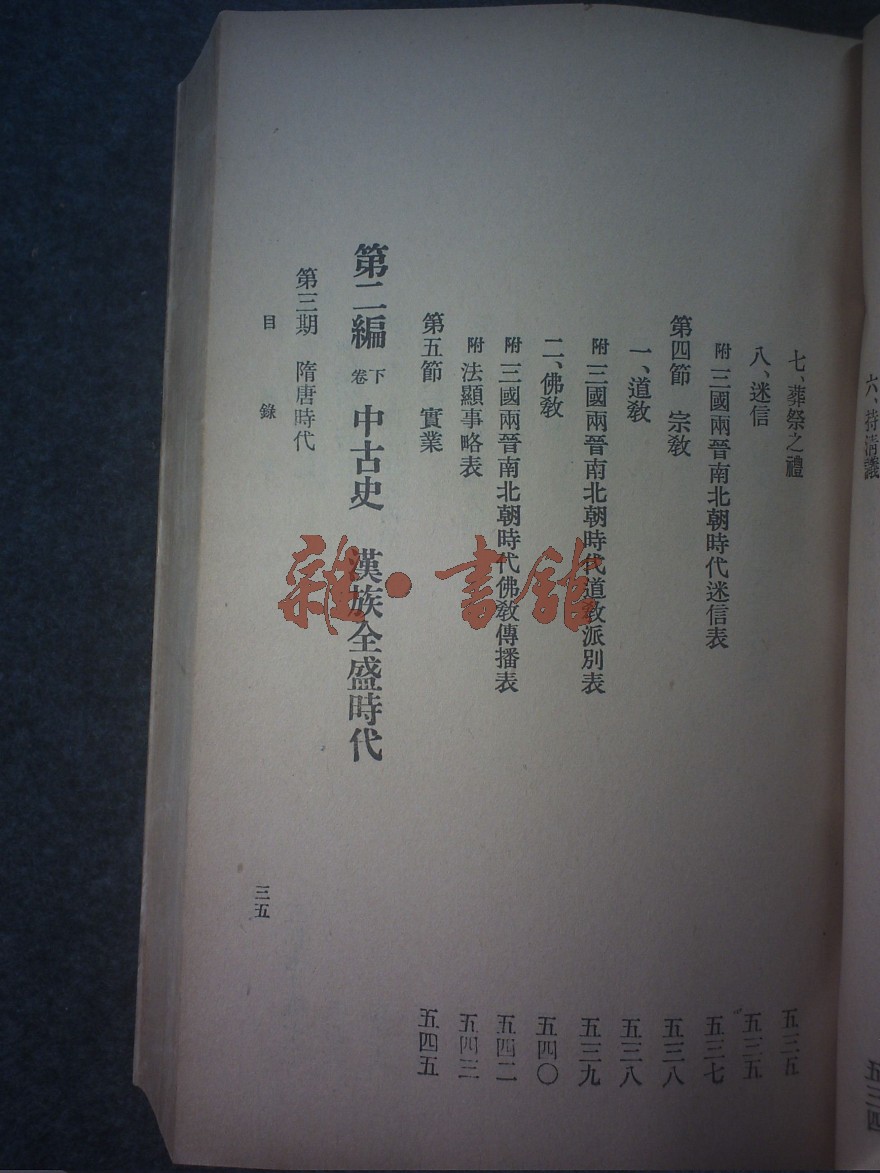 六、持清議 五三四
七、葬祭之禮 五三五
八、迷信 五三五
附 三國兩晉南北朝時代迷信表 五三七
第四節 宗敎 五三八
一、道敎 五三八
附 三國兩晉南北朝時代道敎派別表 五三九
二、佛敎 五四〇
附 三國兩晉南北朝時代佛敎傳播表 五四二
附 法顯事略表 五四三
第五節 實業 五四五
第二編 下卷 中古史 漢族全盛時代
第三期 隋唐時代
目錄 三五
雜·書館